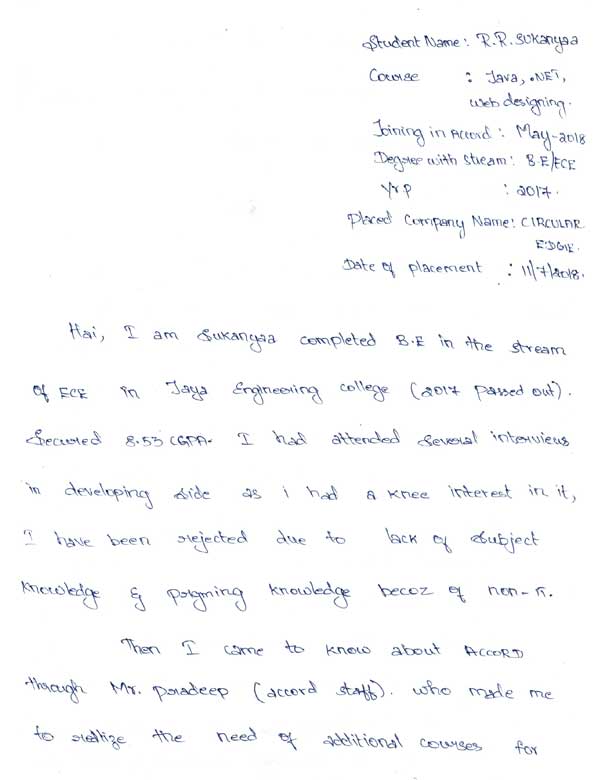 Student Name : R.R. SUKanyaa
Course : Java, .NET,
web designing.
Joining in Accord : May-2018
Degree with Stream : B.E/ECE
Yrp : 2017.
Placed Company Name: CIRCULAR
EDGE.
Date of placement : 11/7/2018.
Hai, I am Sukanyaa completed B.E in the stream
of ECE in Jaya Engineering college (2017 passed out).
Secured 8.53 CGPA. I had attended several interviews
in developing side as i had a knee interest in it,
I have been rejected due to lack of subject
knowledge & prgming knowledge becoz of non-IT.
Then I came to know about ACCORD
through Mr. pradeep (accord staff). who made me
to realize the need of additional courses for